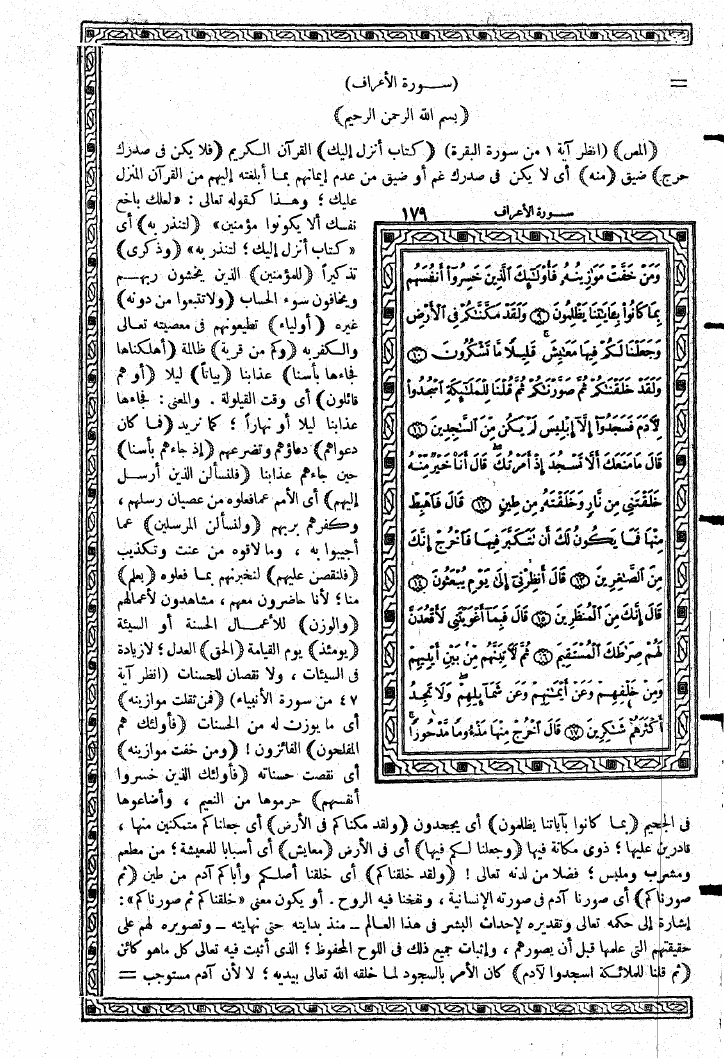 (ســـورة الأعراف) =
(بسم الله الرحمن الرحيم)
(المص) (انظر آية ١ من سورة البقرة) (كتاب أنزل إليك) القرآن الكريم (فلا يكن فى صدرك
حرج) ضيق (منه) أى لا يكن فى صدرك غم أو ضيق من عدم إيمانهم بما أبلغته إليهم من القرآن المنزل
عليك ؛ وهذا كقوله تعالى : «لعلك باخع
نفسك ألا يكونوا مؤمنين» (لتنذر به) أى
«كتاب أنزل إليك ؛ لتنذر به» (وذكرى)
تذكيراً (للمؤمنين) الذين يخشون ربهم
ويخافون سوء الحساب (ولا تتبعوا من دونه)
غيره (أولياء) تطيعونهم فى معصيته تعالى
والكفر به (وكم من قرية) ظالمة (أهلكناها
فجاءها بأسنا) عذابنا (بياتاً) ليلا (أو هم
قائلون) أى وقت القيلولة . والمعنى : فجاءها
عذابنا ليلا أو نهاراً ؛ كما نريد (فما كان
دعواهم) دعاؤهم وتضرعهم (إذ جاءهم بأسنا)
حين جاءهم عذابنا (فلنسألن الذين أرسل
إليهم) أى الأمم عما فعلوه من عصيان رسلهم ،
وكفرهم بربهم (ولنسألن المرسلين) عما
أجيبوا به ، وما لاقوه من عنت وتكذيب
(فلنقصن عليهم) لنخبرنهم بما فعلوه (بعلم)
منا ؛ لأنا حاضرون معهم ، مشاهدون لأعمالهم
(والوزن) للأعمال الحسنة أو السيئة
(يومئذ) يوم القيامة (الحق) العدل ؛ لا زيادة
فى السيئات ، ولا نقصان للحسنات (انظر آية
٤٧ من سورة الأنبياء) (فمن ثقلت موازينه)
أى ما يوزن له من الحسنات (فأولئك هم
المفلحون) الفائزون ! (ومن خفت موازينه)
أى نقصت حسناته (فأولئك الذين خسروا
أنفسهم) حرموها من النعيم ، وأضاعوها
سـورة الأعراف ١٧٩
وَمَنْ خَفَّتْ مَوَٰزِينُهُۥ فَأُوْلَٰٓئِكَ ٱلَّذِينَ خَسِرُوٓا۟ أَنفُسَهُم
بِمَا كَانُوا۟ بِـَٔايَٰتِنَا يَظْلِمُونَ ٩ وَلَقَدْ مَكَّنَّٰكُمْ فِى ٱلْأَرْضِ
وَجَعَلْنَا لَكُمْ فِيهَا مَعَٰيِشَ ۗ قَلِيلًا مَّا تَشْكُرُونَ ١٠
وَلَقَدْ خَلَقْنَٰكُمْ ثُمَّ صَوَّرْنَٰكُمْ ثُمَّ قُلْنَا لِلْمَلَٰٓئِكَةِ ٱسْجُدُوا۟
لِأٓدَمَ فَسَجَدُوٓا۟ إِلَّآ إِبْلِيسَ لَمْ يَكُن مِّنَ ٱلسَّٰجِدِينَ ١١
قَالَ مَا مَنَعَكَ أَلَّا تَسْجُدَ إِذْ أَمَرْتُكَ ۖ قَالَ أَنَا۠ خَيْرٌ مِّنْهُ
خَلَقْتَنِى مِن نَّارٍ وَخَلَقْتَهُۥ مِن طِينٍ ١٢ قَالَ فَٱهْبِطْ
مِنْهَا فَمَا يَكُونُ لَكَ أَن تَتَكَبَّرَ فِيهَا فَٱخْرُجْ إِنَّكَ
مِنَ ٱلصَّٰغِرِينَ ١٣ قَالَ أَنظِرْنِىٓ إِلَىٰ يَوْمِ يُبْعَثُونَ ١٤
قَالَ إِنَّكَ مِنَ ٱلْمُنظَرِينَ ١٥ قَالَ فَبِمَآ أَغْوَيْتَنِى لَأَقْعُدَنَّ
لَهُمْ صِرَٰطَكَ ٱلْمُسْتَقِيمَ ١٦ ثُمَّ لَأٓتِيَنَّهُم مِّنۢ بَيْنِ أَيْدِيهِمْ
وَمِنْ خَلْفِهِمْ وَعَنْ أَيْمَٰنِهِمْ وَعَن شَمَآئِلِهِمْ ۖ وَلَا تَجِدُ
أَكْثَرَهُمْ شَٰكِرِينَ ١٧ قَالَ ٱخْرُجْ مِنْهَا مَذْءُومًا مَّدْحُورًا ۖ
فى الجحيم (بما كانوا بآياتنا يظلمون) أى يجحدون (ولقد مكناكم فى الأرض) أى جعلناكم متمكنين منها ،
قادرين عليها ؛ ذوى مكانة فيها (وجعلنا لكم فيها) أى فى الأرض (معايش) أى أسبابا للمعيشة ؛ من مطعم
ومشرب وملبس ؛ فضلا من لدنه تعالى ! (ولقد خلقناكم) أى خلقنا أصلكم وأباكم آدم من طين (ثم
صورناكم) أى صورنا آدم فى صورته الإنسانية ، ونفخنا فيه الروح . أو يكون معنى «خلقناكم ثم صورناكم» :
إشارة إلى حكمه تعالى وتقديره لإحداث البشر فى هذا العالم ــ منذ بدايته حتى نهايته ــ وتصويره لهم على
حقيقتهم التى علمها قبل أن يصورهم ، وإثبات جميع ذلك فى اللوح المحفوظ ؛ الذى أثبت فيه تعالى كل ماهو كائن
(ثم قلنا للملائكة اسجدوا لآدم) كان الأمر بالسجود لما خلقه الله تعالى بيديه ؛ لا لأن آدم مستوجب =